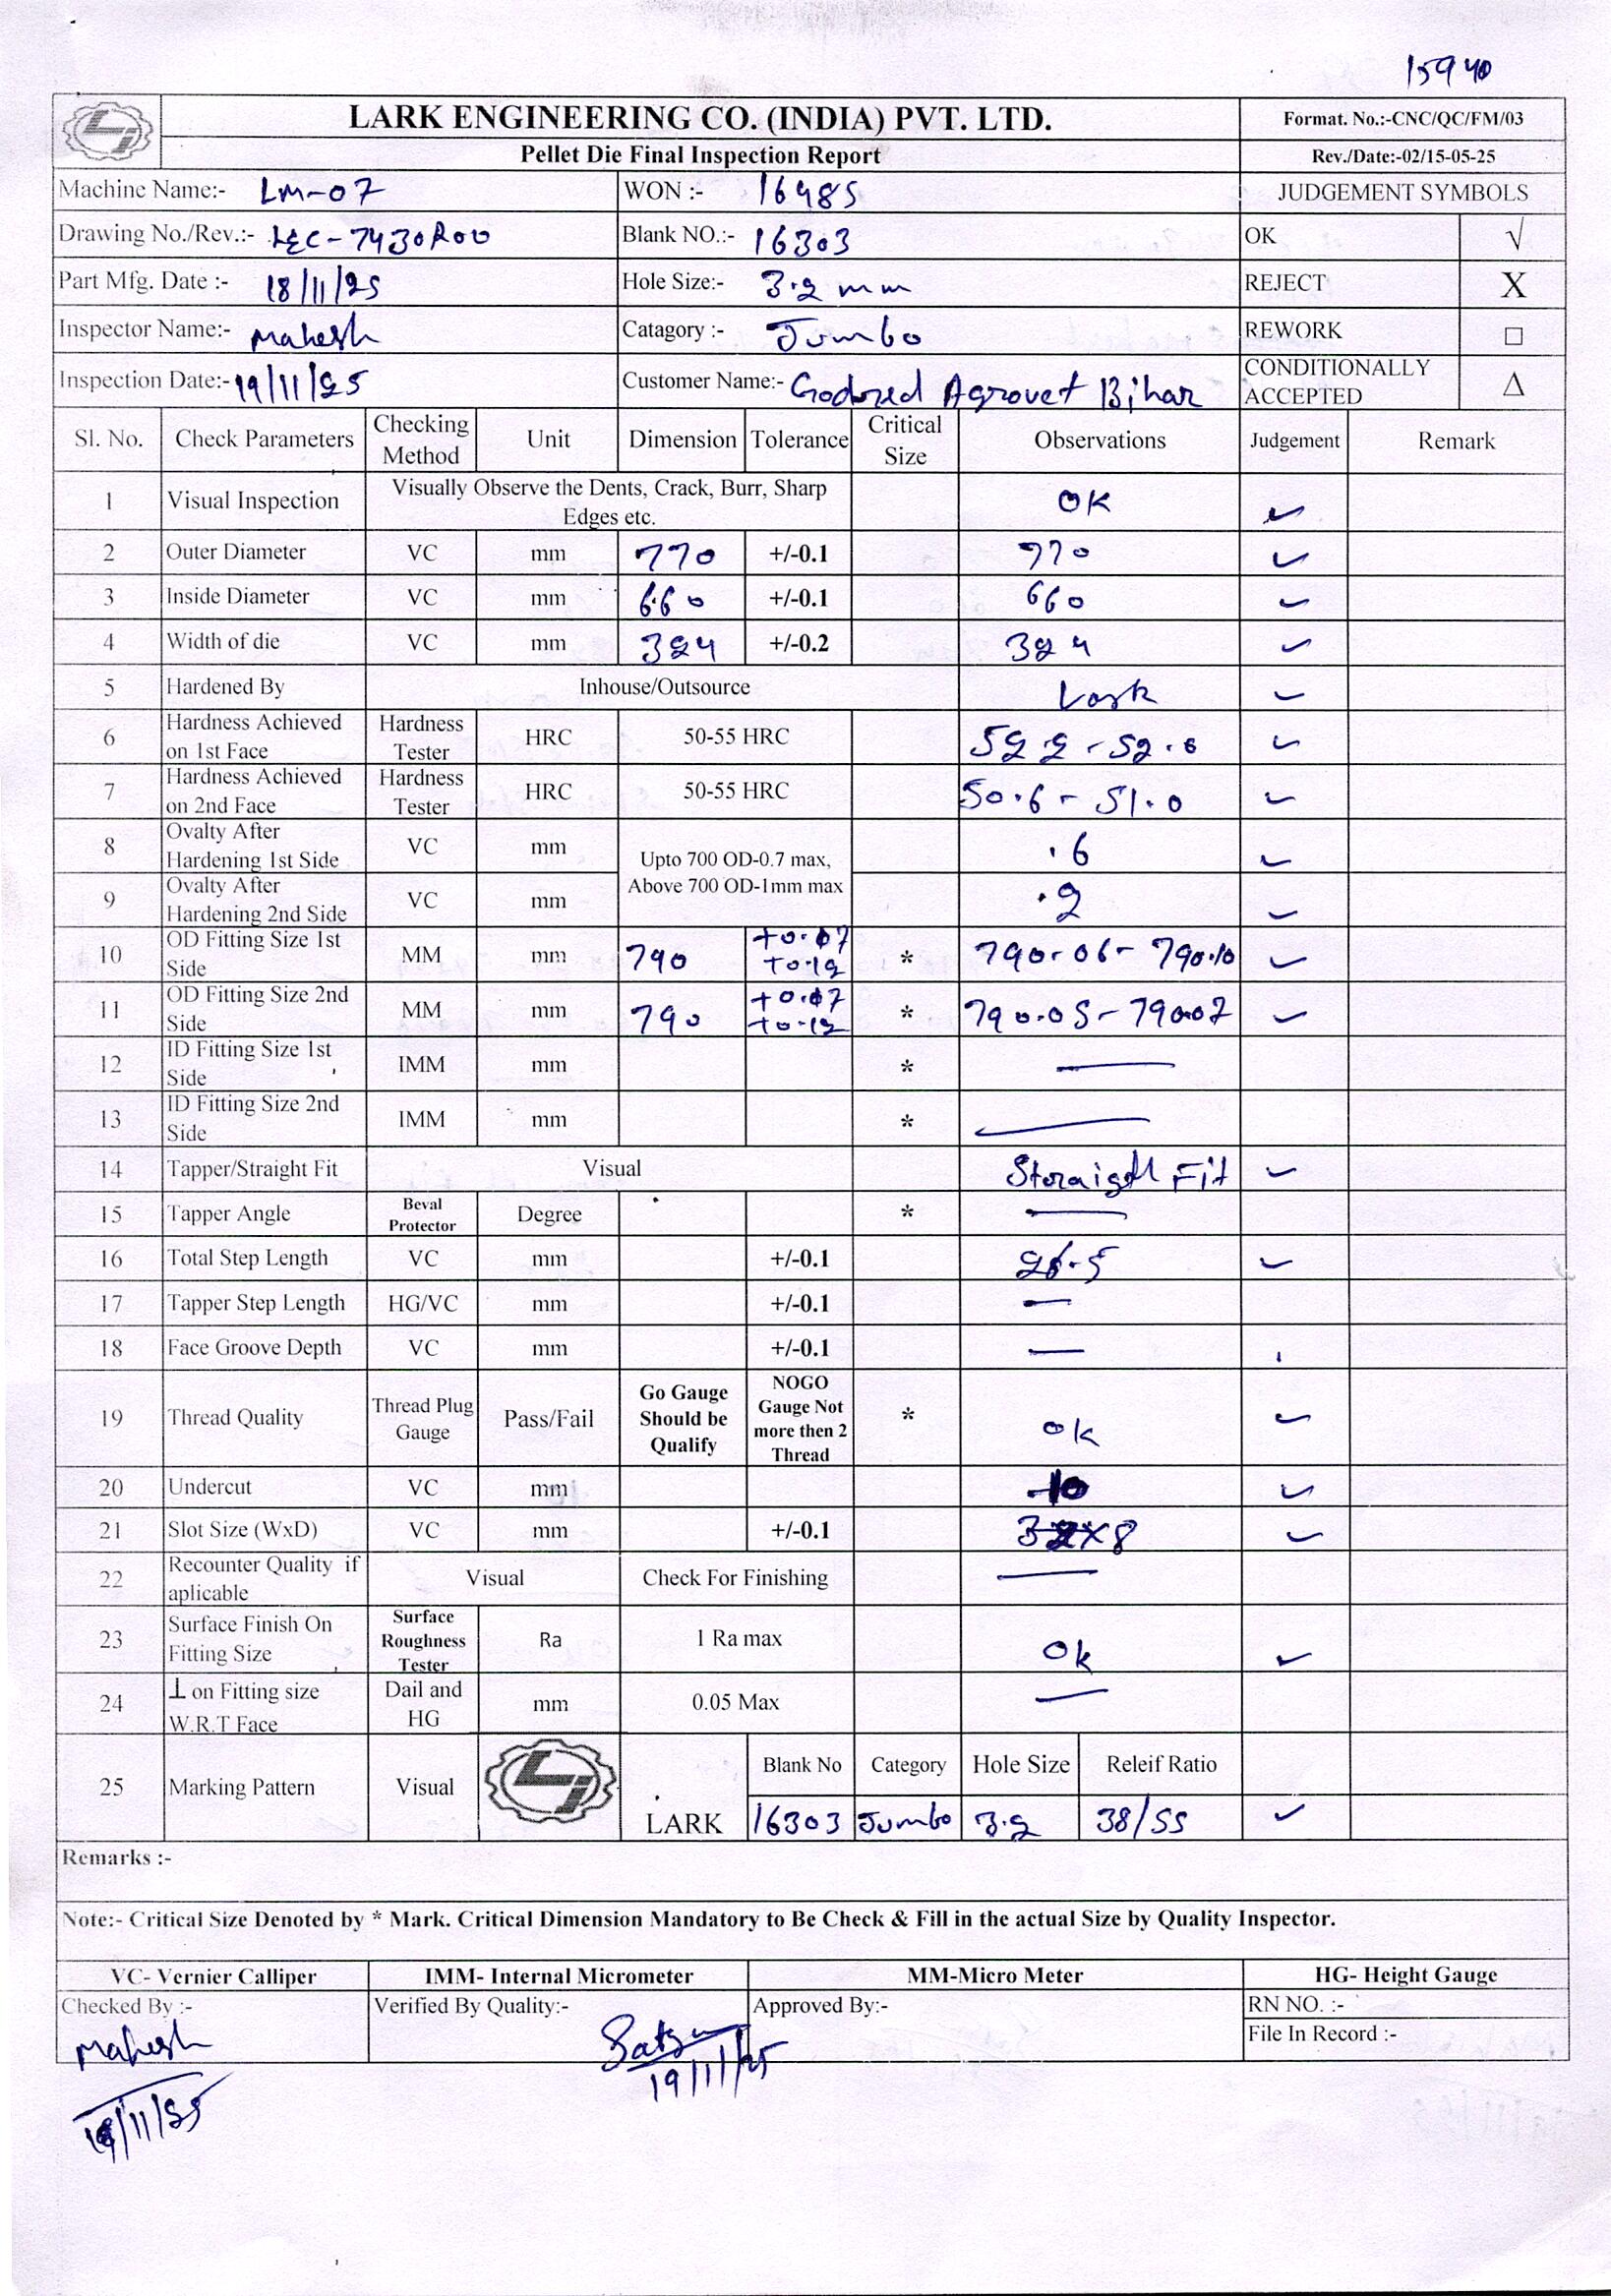 15940
LARK ENGINEERING CO. (INDIA) PVT. LTD.
Format. No.:-CNC/QC/FM/03
Pellet Die Final Inspection Report
Rev./Date:-02/15-05-25
Machine Name:- LM-07 WON :- 16485 JUDGEMENT SYMBOLS
Drawing No./Rev.:- LEC-7430R00 Blank NO.:- 16303 OK √
Part Mfg. Date :- 18/11/25 Hole Size:- 3.2 mm REJECT X
Inspector Name:- Mahesh Catagory :- Jumbo REWORK □
Inspection Date:- 19/11/25 Customer Name:- Godrej Agrovet Bihar CONDITIONALLY ACCEPTED Δ
Sl. No. Check Parameters Checking Method Unit Dimension Tolerance Critical Size Observations Judgement Remark
1 Visual Inspection Visually Observe the Dents, Crack, Burr, Sharp Edges etc. OK ✓
2 Outer Diameter VC mm 770 +/-0.1 770 ✓
3 Inside Diameter VC mm 660 +/-0.1 660 ✓
4 Width of die VC mm 324 +/-0.2 324 ✓
5 Hardened By Inhouse/Outsource Lark ✓
6 Hardness Achieved on 1st Face Hardness Tester HRC 50-55 HRC 52.2 - 52.6 ✓
7 Hardness Achieved on 2nd Face Hardness Tester HRC 50-55 HRC 50.6 - 51.0 ✓
8 Ovalty After Hardening 1st Side VC mm Upto 700 OD-0.7 max, Above 700 OD-1mm max .6 ✓
9 Ovalty After Hardening 2nd Side VC mm .2 ✓
10 OD Fitting Size 1st Side MM mm 790 +0.07 +0.12 * 790.06 - 790.10 ✓
11 OD Fitting Size 2nd Side MM mm 790 +0.07 +0.12 * 790.05 - 790.07 ✓
12 ID Fitting Size 1st Side IMM mm * —
13 ID Fitting Size 2nd Side IMM mm * —
14 Tapper/Straight Fit Visual Straight Fit ✓
15 Tapper Angle Beval Protector Degree * —
16 Total Step Length VC mm +/-0.1 26.5 ✓
17 Tapper Step Length HG/VC mm +/-0.1 —
18 Face Groove Depth VC mm +/-0.1 —
19 Thread Quality Thread Plug Gauge Pass/Fail Go Gauge Should be Qualify NOGO Gauge Not more then 2 Thread * ok ✓
20 Undercut VC mm 10 ✓
21 Slot Size (WxD) VC mm +/-0.1 32x8 ✓
22 Recounter Quality if aplicable Visual Check For Finishing —
23 Surface Finish On Fitting Size Surface Roughness Tester Ra 1 Ra max Ok ✓
24 ⊥ on Fitting size W.R.T Face Dail and HG mm 0.05 Max —
25 Marking Pattern Visual LARK Blank No Category Hole Size Releif Ratio
16303 Jumbo 3.2 38/55 ✓
Remarks :-
Note:- Critical Size Denoted by * Mark. Critical Dimension Mandatory to Be Check & Fill in the actual Size by Quality Inspector.
VC- Vernier Calliper IMM- Internal Micrometer MM-Micro Meter HG- Height Gauge
Checked By :- Verified By Quality:- Approved By:- RN NO. :-
File In Record :-
Mahesh
19/11/25
19/11/25